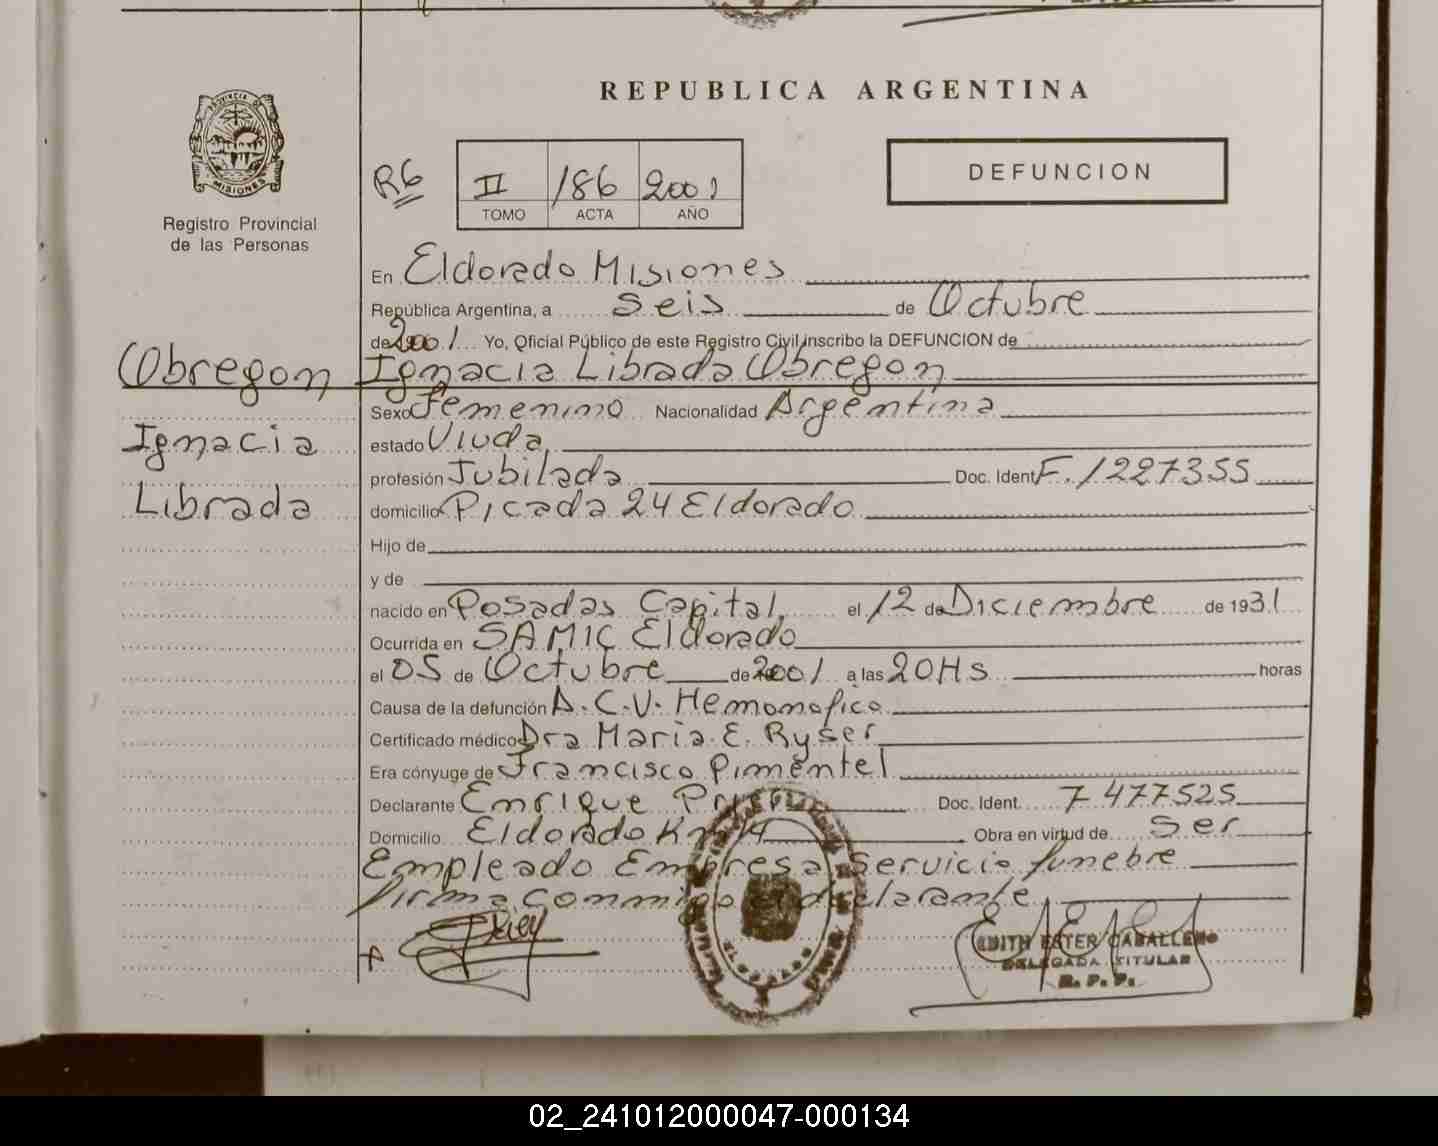 REPUBLICA ARGENTINA
PROVINCIA DE
MISIONES
Registro Provincial
de las Personas
R6
II /86 2001
TOMO ACTA AÑO
DEFUNCION
En Eldorado Misiones
República Argentina, a seis de Octubre
de 2001 Yo, Oficial Público de este Registro Civil inscribo la DEFUNCION de
Obregon Ignacia Librada Obregon
Sexo Femenino Nacionalidad Argentina
Ignacia estado Viuda
profesión Jubilada Doc. Ident F. 1227355
Librada domicilio Picada 24 Eldorado
Hijo de
y de
nacido en Posadas Capital el 12 de Diciembre de 1931
Ocurrida en SAMIC Eldorado
el 05 de Octubre de 2001 a las 20Hs horas
Causa de la defunción A.C.V. Hemorrafico
Certificado médico Dra Maria E. Ryser
Era cónyuge de Francisco Pimentel
Declarante Enrique Doc. Ident. 7477525
Domicilio Eldorado Km Obra en virtud de Ser
Empleado Empresa Servicio funebre
firma conmigo el declarante
EDITH ESTER CABALLERO
DELEGADA TITULAR
R. P. P.
ELDORADO
02_241012000047-000134